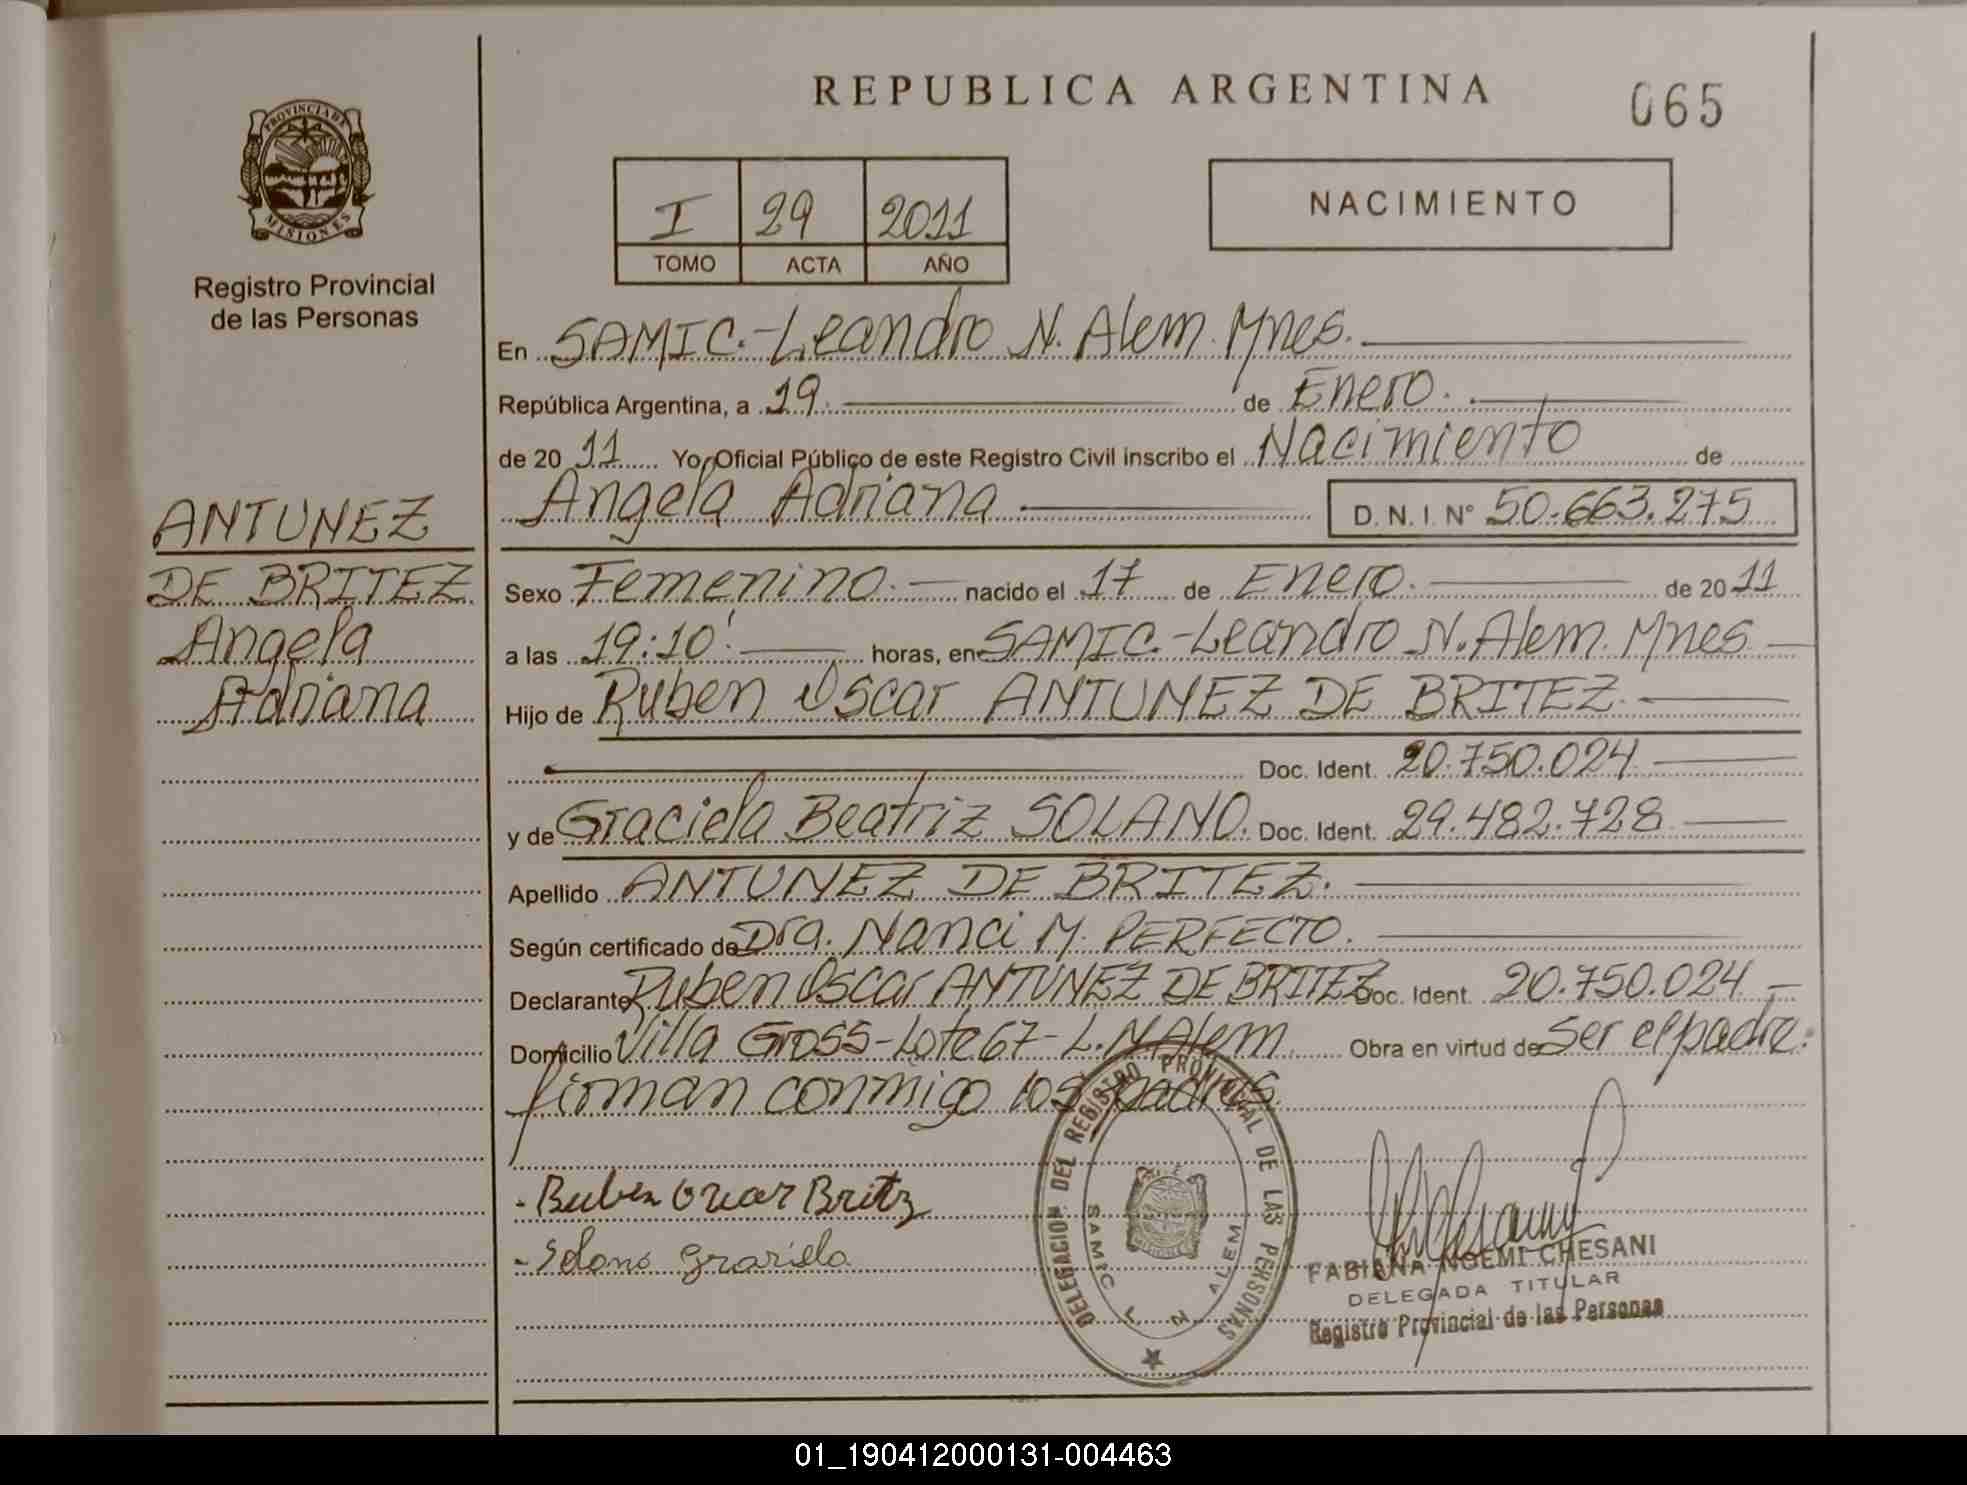 REPUBLICA ARGENTINA
065
PROVINCIA DE
MISIONES
Registro Provincial
de las Personas
I 29 2011
TOMO ACTA AÑO
NACIMIENTO
En SAMIC.-Leandro N. Alem. Mnes.
República Argentina, a 19. de Enero.
de 20 11 Yo, Oficial Público de este Registro Civil inscribo el Nacimiento de
Angela Adriana D.N.I. N° 50.663.275
ANTUNEZ
DE BRITEZ
Angela
Adriana
Sexo Femenino. nacido el 17 de Enero. de 20 11
a las 19:10'. horas, en SAMIC.-Leandro N. Alem. Mnes
Hijo de Ruben Oscar ANTUNEZ DE BRITEZ.
Doc. Ident. 20.750.024
y de Graciela Beatriz SOLANO. Doc. Ident. 29.482.728
Apellido ANTUNEZ DE BRITEZ.
Según certificado de Dra. Nanci M. PERFECTO.
Declarante Ruben Oscar ANTUNEZ DE BRITEZ Doc. Ident. 20.750.024
Domicilio Villa Gross-Lote 67-L.N.Alem Obra en virtud de Ser el padre.
firman conmigo los padres.
- Ruben Oscar Britz
- Solano Graciela
DELEGACION DEL REGISTRO PROVINCIAL DE LAS PERSONAS
SAMIC L N ALEM
MISIONES
FABIANA NOEMI CHESANI
DELEGADA TITULAR
Registro Provincial de las Personas
01_190412000131-004463